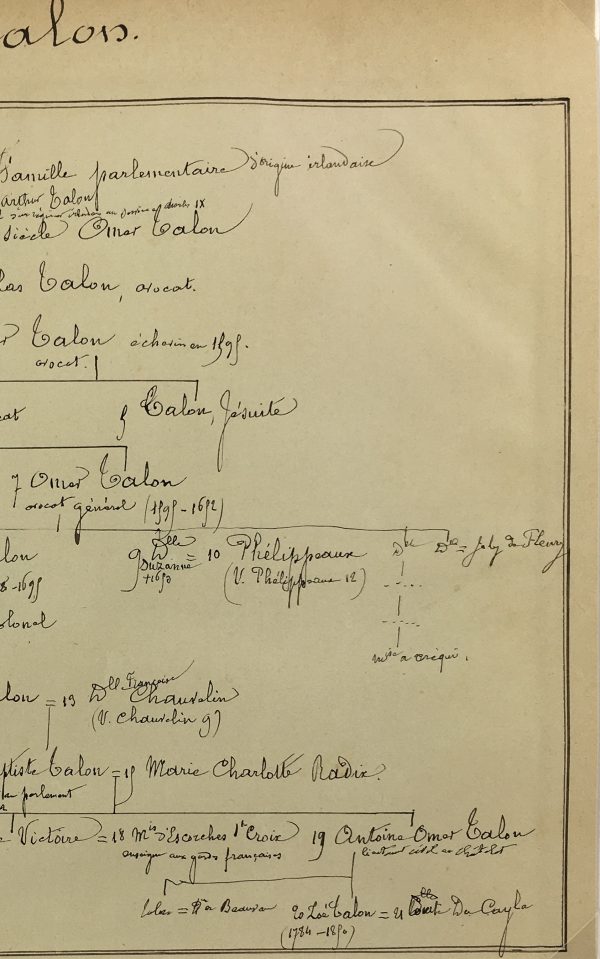 alon.
Famille parlementaire d'origine irlandaise
arthur Talon
IX
siècle Omer Talon
las Talon, avocat.
r Talon échevin en 1595.
avocat.
cat 5 Talon, Jésuite
7 Omer Talon
avocat général (1595-1652)
alon 9 Dlle = 10 Phélippeaux Dlle Dlle = Joly de Fleury
Suzanne
8-1695 +1650 (V. Phélippeaux 12)
olonel
mise à créqui.
alon = 13 Dlle Françoise Chauvelin
(V. Chauvelin 9)
ptiste Talon = 15 Marie Charlotte Radix.
au parlement
e Victoire = 18 Mis d'Escorches Ste Croix 19 Antoine Omer Talon
enseigne aux gardes françaises lieutenant civil au chatelet
= 20 Zoé Talon = 21 Comte Du Cayla
(1784-1850)